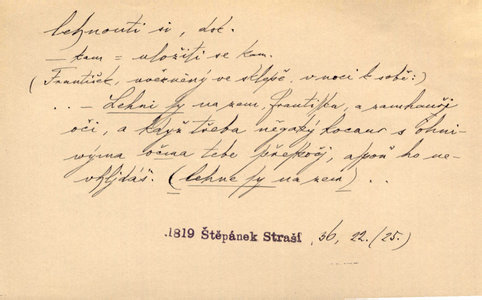 lehnouti si, dok.
— kam = uložiti se kam.
(František, uvězněný ve sklepě v noci k sobě:)
. . – Lehni sy na zem, Františku, a zamhouři
oči, a když třeba nějaký kocour s ohni-
výma očima tebe přeskočí, aspoň ho ne-
(lehne sy na zem) . .
1819 Štěpánek Straší, 36, 22. (25.)